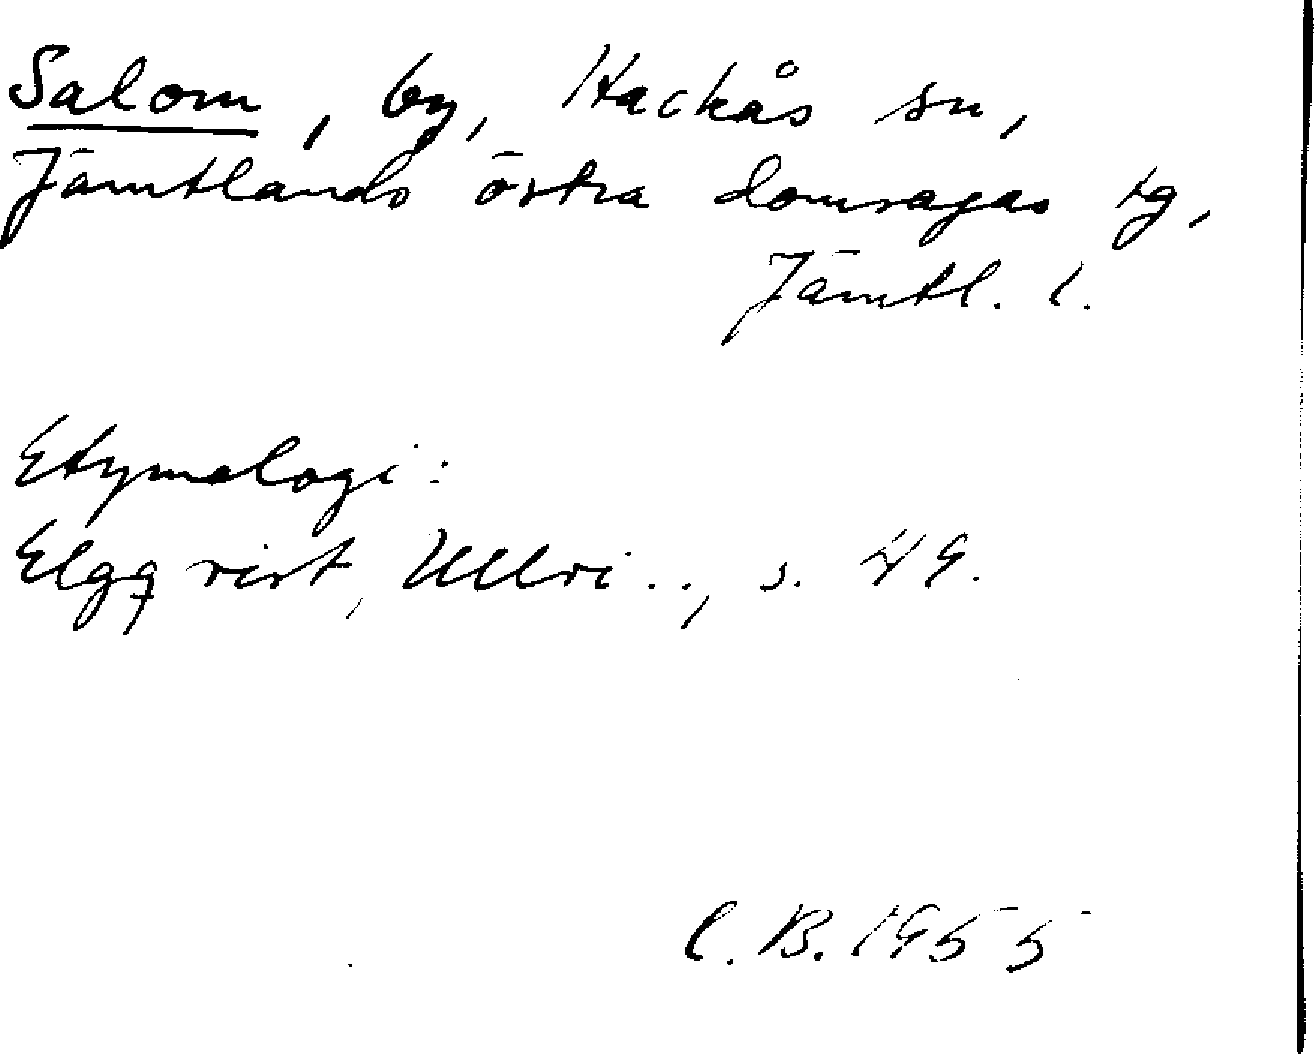 Salom, by, Hackås sn,
Jämtlands östra domsagas tg,
Jämtl. l.
Etymologi:
Elgqvist, Ullvi.., s. 49.
C. B. 1955